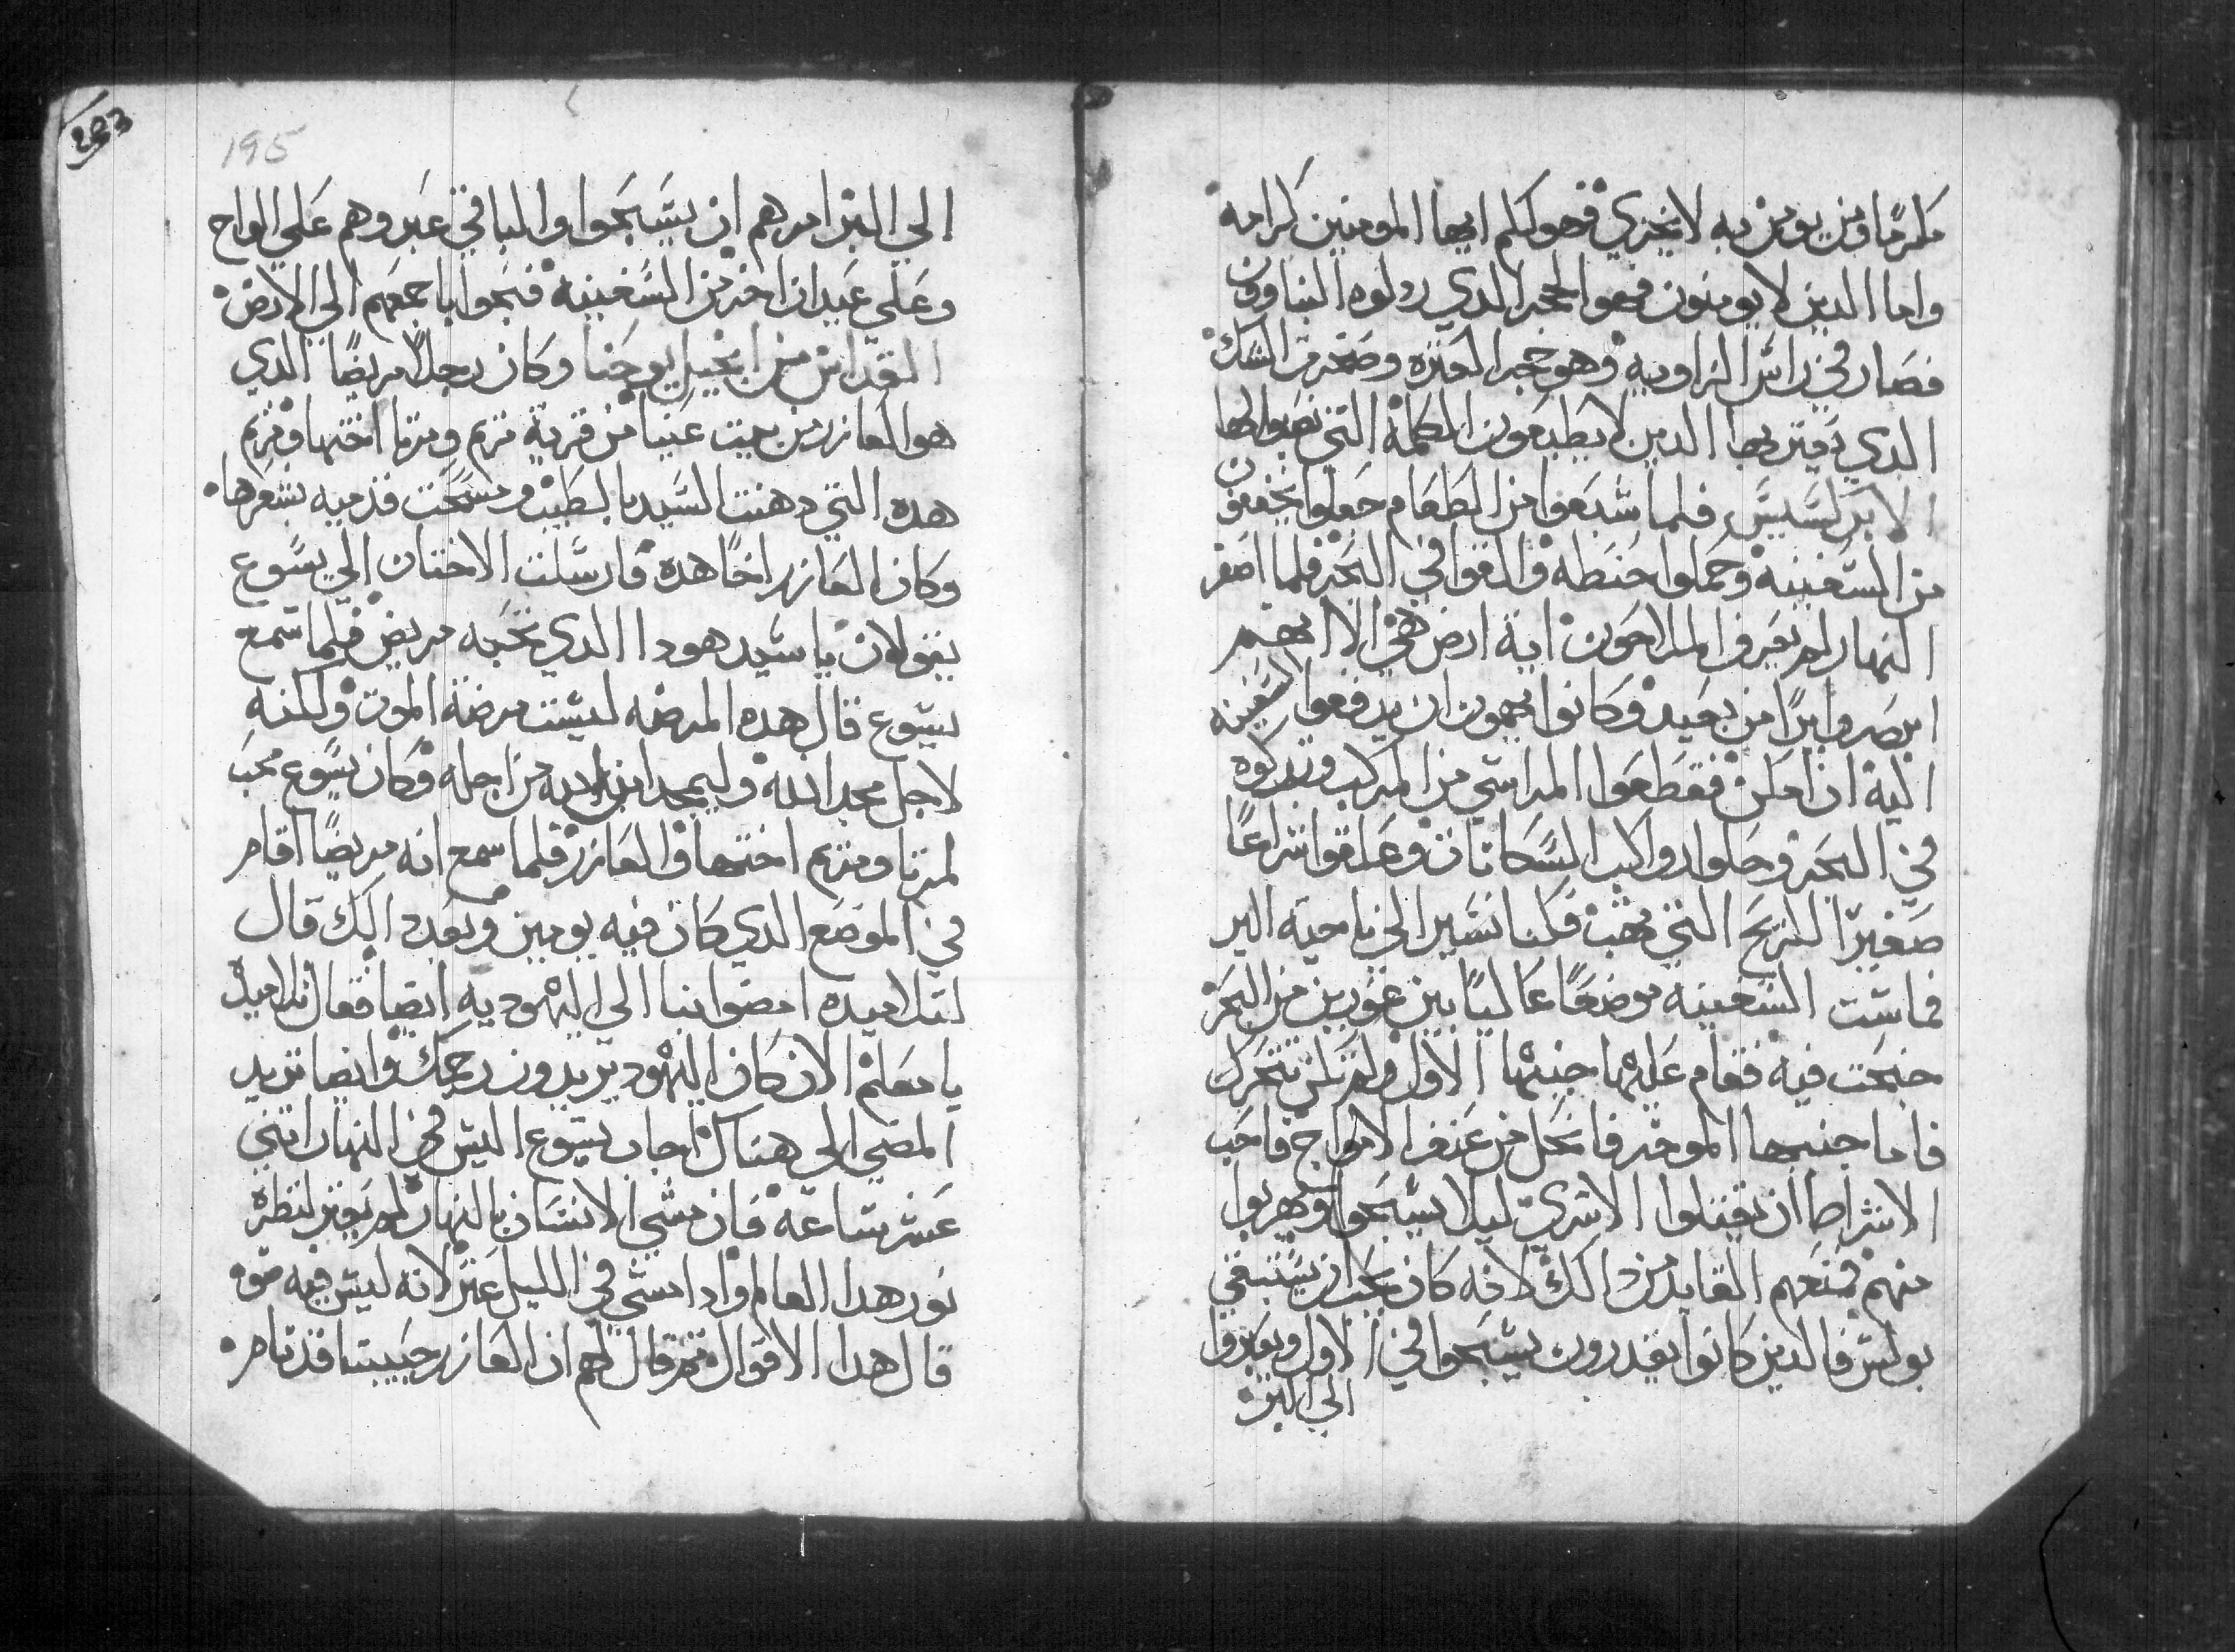 مكرمًا ومن يومن به لا يخزي فهو لكم ايها المومنين كرامه
واما الدين لا يومنون فهو الحجر الدي ردلوه البناوون
فصار في راس الزاويه وهو حجر العتره وصخرة الشك
الدي يعتر بها الدين لا يطيعون الكلمة التي نصبوا لها
الابركسيس فلما شبعوا من الطعام جعلوا يخففون
من السفينه وحملوا حنطه والقوا في البحر فلما اصفر
النهار لم يعرف الملاحون اية ارض هي الا انهم
ابصروا برًا من بعيد وكانوا يهمون ان يدفعوا السفينه
اليه ان امكن فقطعوا المراسي من المركب وتركوه
في البحر وحلوا رواكب السكانات وعلقوا شراعًا
صغيرًا للريح التي تهب فكنا نسير الي ناحية البر
فماست السفينه موضعًا عاليًا بين غورين من البحر
جنحت فيه فقام عليها جنبها الاول ولم تكن تتحرك
فاما جنبها الموخر فانحل من عنف الامواج فاحب
الاشراط ان يقتلوا الاسري ليلا يسبحوا ويهربوا
منهم فمنعهم القايد من دالك لانه كان يحب ان يستبقي
بولس فالدين كانوا يقدرون يسبحوا في الاول ويعبروا
الي البر
195
الي البر امرهم ان يسبحوا والباقي عبروهم علي الواح
وعلي عيدان اخر من السفينه فنجوا باجمعهم الي الارض
القداس من انجيل يوحنا وكان رجلاً مريضًا الدي
هو العازر من بيت عنيا من قرية مريم ومرتا اختها ومريم
هده التي دهنت السيد بالطيب ومسحت قدميه بشعرها
وكان العازر اخًا هده فارسلت الاختان الي يسوع
يقولان يا سيد هودا الدي تحبه مريض فلما سمع
يسوع قال هده المرضه ليست مرضة الموت ولكنه
لاجل مجد الله وليمجد ابن الله من اجله وكان يسوع محب
لمرتا ومريم اختها والعازر فلما سمع انه مريضًا اقام
في الموضع الدي كان فيه يومين وبعد دالك قال
لتلاميده امضوا بنا الي اليهوديه ايضا فقال تلاميده
يا معلم الان كان اليهود يريدون رجمك وايضا تريد
المضي الي هناك اجاب يسوع اليس في النهار اتني
عشر ساعة فان مشي الانسان بالنهار لم يعتر لنظره
نور هدا العالم وادا مشي في الليل عتر لانه ليس فيه ضوه
قال هدا الاقوال تم قال لهم ان العازر حبيبنا قد نام